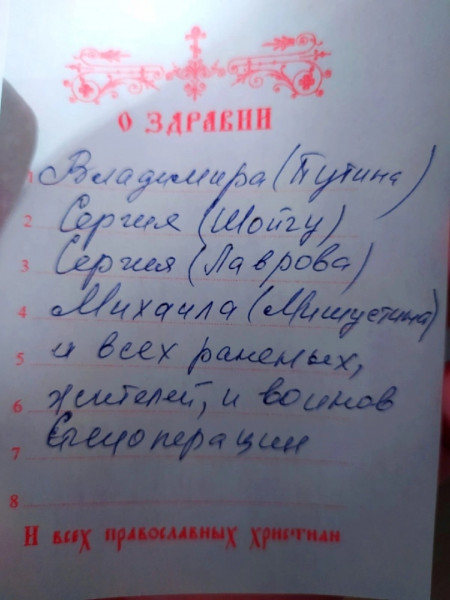 О ЗДРАВИИ
1 Владимира (Путина)
2 Сергия (Шойгу)
3 Сергия (Лаврова)
4 Михаила (Мишустина)
5 и всех раненых,
6 жителей, и воинов
7 Спецоперации
8
И всех православных христиан